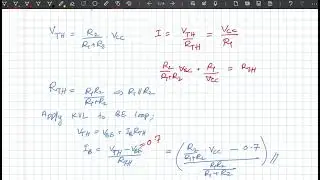 V_TH = R2/(R1+R2) VCC I = V_TH/R_TH = VCC/R1
R2/(R1+R2) VCC · R1/VCC = R_TH
R_TH = R1R2/(R1+R2) ⇒ R1||R2
Apply KVL to BE loop,
V_TH = V_BE + I_B R_TH
I_B = (V_TH - V_BE)/R_TH 0.7 = (R2/(R1+R2) VCC - 0.7)/(R1R2/(R1+R2)) //